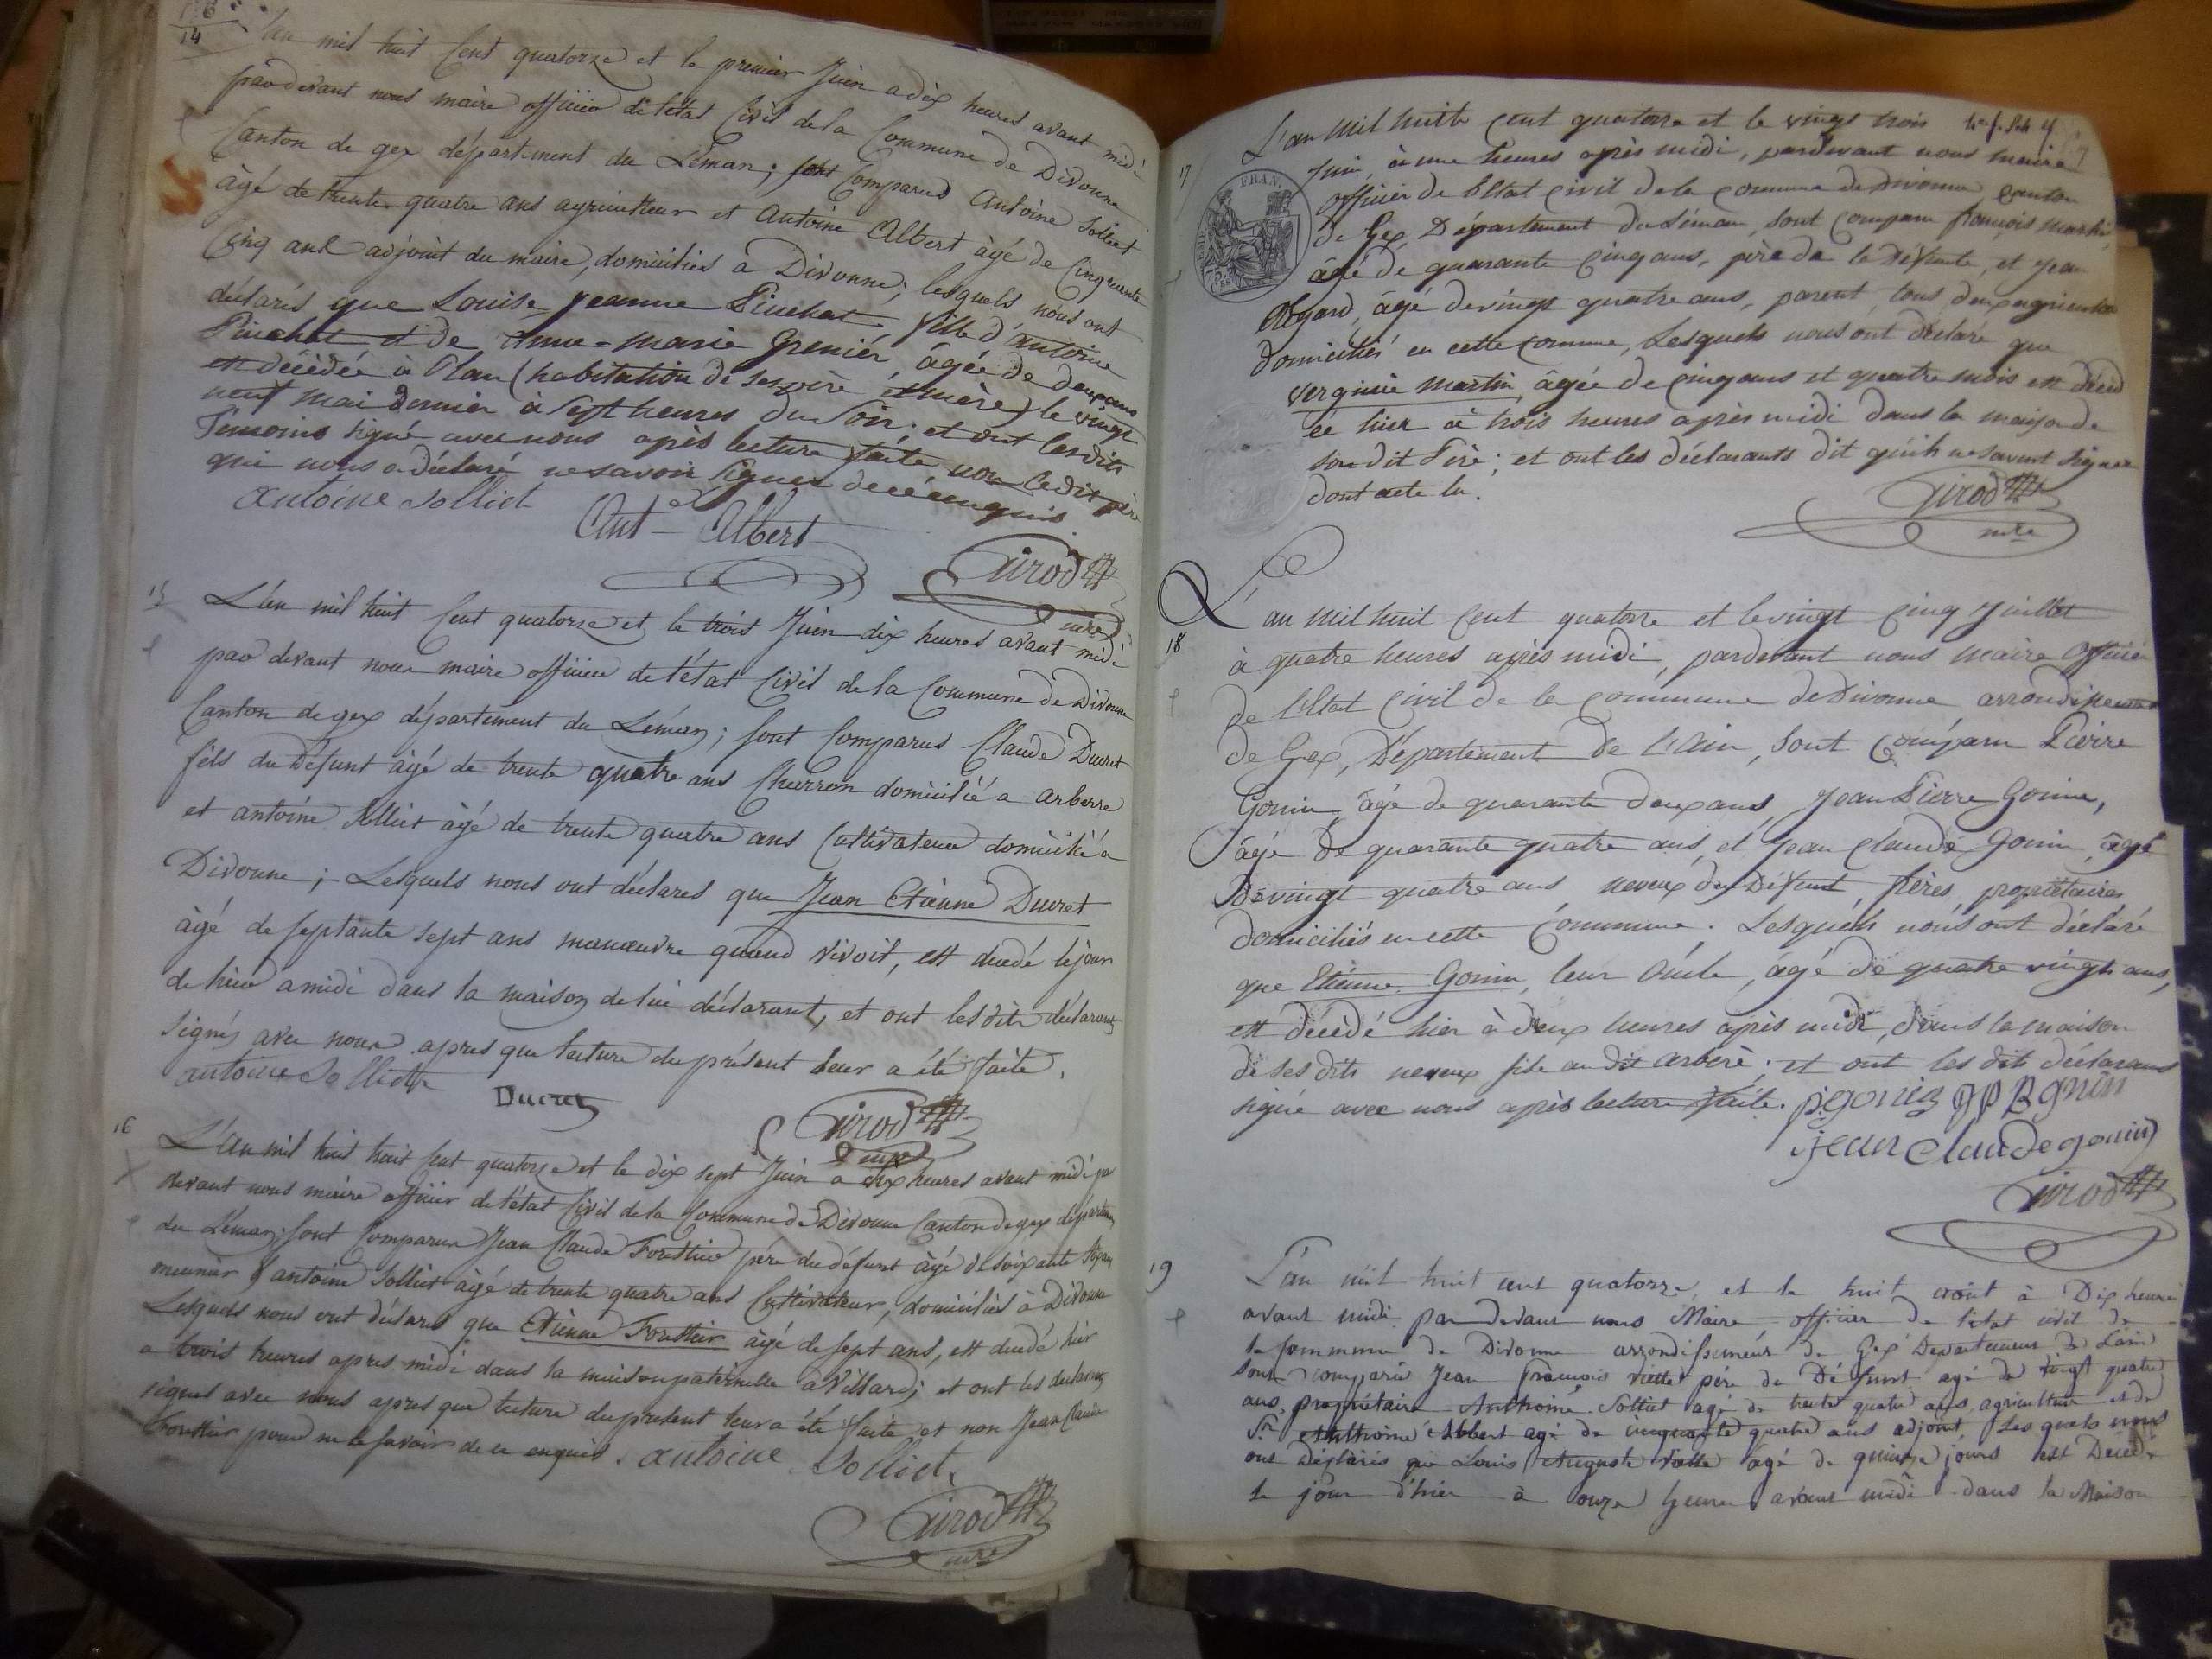 14
L'an mil huit Cent quatorze et le premier Juin a dix heures avant midi
pardevant nous maire officier de l'état Civil de la Commune de Divonne
Canton de gex département du Léman; sont Comparus Antoine Solliet
âgé de trente quatre ans agriculteur et Antoine Albert âgé de Cinquante
Cinq ans adjoint du maire, domiciliés a Divonne; lesquels nous ont
déclarés que Louise Jeanne Pinchat, fille d'antoine
Pinchat et de Anne-marie Grenier, âgée de deux ans
est décédée à Plan (habitation de ses père et mère) le vingt
neuf mai dernier à Sept heures du Soir; et ont lesdits
Témoins signé avec nous après lecture faite non ledit père
qui nous a déclaré ne savoir signer de ce enquis
antoine Solliet
Ant Albert
Girod
mre
15
L'an mil huit Cent quatorze et le trois Juin dix heures avant midi
par devant nous maire officier de l'état Civil de la Commune de Divonne
Canton de gex département du Léman; sont Comparus Claude Ducret
fils du Défunt âgé de trente quatre ans Charron domicilié a arberre
et antoine Solliet âgé de trente quatre ans Cultivateur domicilié a
Divonne; Lesquels nous ont déclarés que Jean Etienne Ducret
âgé de septante sept ans manœuvre quand vivoit, est decedé le jour
de hier a midi dans la maison de lui déclarant, et ont lesdits déclarants
signés avec nous apres que lecture du présent leur a été faite.
antoine Solliet
Ducret
Girod
mre
16
L'an mil huit huit Cent quatorze et le dix sept Juin a dix heures avant midi par
devant nous maire officier de l'état Civil de la Commune de Divonne Canton de gex département
du Léman; sont Comparus Jean Claude Forestier père du défunt âgé de soixante
meunier & antoine Solliet âgé de trente quatre ans Cultivateur, domiciliés à Divonne
Lesquels nous ont déclarés que Etienne Forestier âgé de sept ans, est decedé hier
a trois heures apres midi dans la maison paternelle a Villard; et ont les declarants
signés avec nous apres que lecture du present leur a été faite et non Jean Claude
Forestier pour ne le savoir de ce enquis. antoine Solliet
Girod
mre
17
L'an mil huit cent quatorze et le vingt trois
Juin, à une heures après midi, pardevant nous maire
officier de l'Etat civil de la commune de Divonne canton
de Gex, Département du Léman, sont comparu françois martin,
âgé de quarante cinq ans, père de la Défunte, et Jean
Regard, âgé de vingt quatre ans, parent tous deux agriculteurs
domiciliés en cette commune, Lesquels nous ont déclaré que
Verginie Martin, âgée de cinq ans et quatre mois est décéd
ée hier à trois heures après midi dans la maison de
son dit Père; et ont les déclarants dit qu'ils ne savent signer
dont acte lu.
FRAN.
Girod
mre
18
L'an mil huit Cent quatorze et le vingt cinq Juillet
à quatre heures après midi, pardevant nous maire officier
de l'Etat Civil de la commune de Divonne arrondissement
de Gex, Département de l'Ain, sont Comparu Pierre
Gonin, âgé de quarante deux ans, Jean Pierre Gonin,
âgé de quarante quatre ans, et Jean Claude Gonin, âgé
de vingt quatre ans neveux du Défunt frères, propriétaires
domiciliés en cette Commune. Lesquels nous ont déclaré
que Etienne Gonin, leur Oncle, âgé de quatre vingts ans,
est décédé hier à deux heures après midi, dans la maison
de ses dits neveux sise au dit arbère; et ont les dits déclarans
signé avec nous après lecture faite. p. gonin
jean claude gonin
Girod
19
L'an mil huit cent quatorze, et le huit août à Dix heures
avant midi. par devant nous Maire officier de l'état civil de
la Commune de Divonne arrondissement de Gex Departement de Lain
sont comparu Jean François Viette père du Défunt agé de vingt quatre
ans, propriétaire Anthoine Solliet agé de trente quatre ans, agriculteur et de
Sr Anthoine Albert agé de cinquante quatre ans adjoint Lesquels nous
ont Déclarés que Louis Auguste Viette âgé de quinze jours est Decedé
le jour d'hier à onze heures avant midi dans la Maison